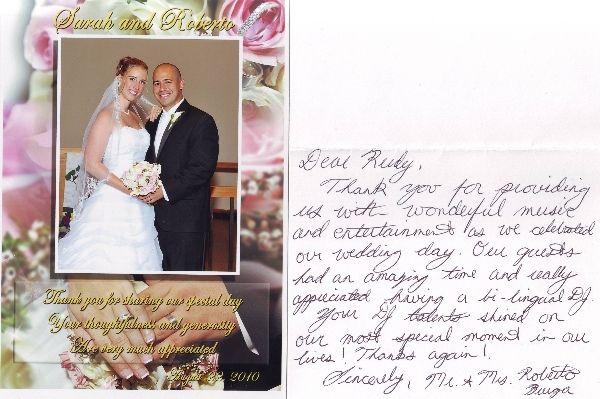 Sarah and Roberto
Thank you for sharing our special day
Your thoughtfulness and generosity
Are very much appreciated
August 2010
Dear Rudy,
Thank you for providing
us with wonderful music
and entertainment as we celebrated
our wedding day. Our guests
had an amazing time and really
appreciated having a bi-lingual DJ.
Your DJ talents shined on
our most special moment in our
lives! Thanks again!
Sincerely, Mr. & Mrs. Roberto